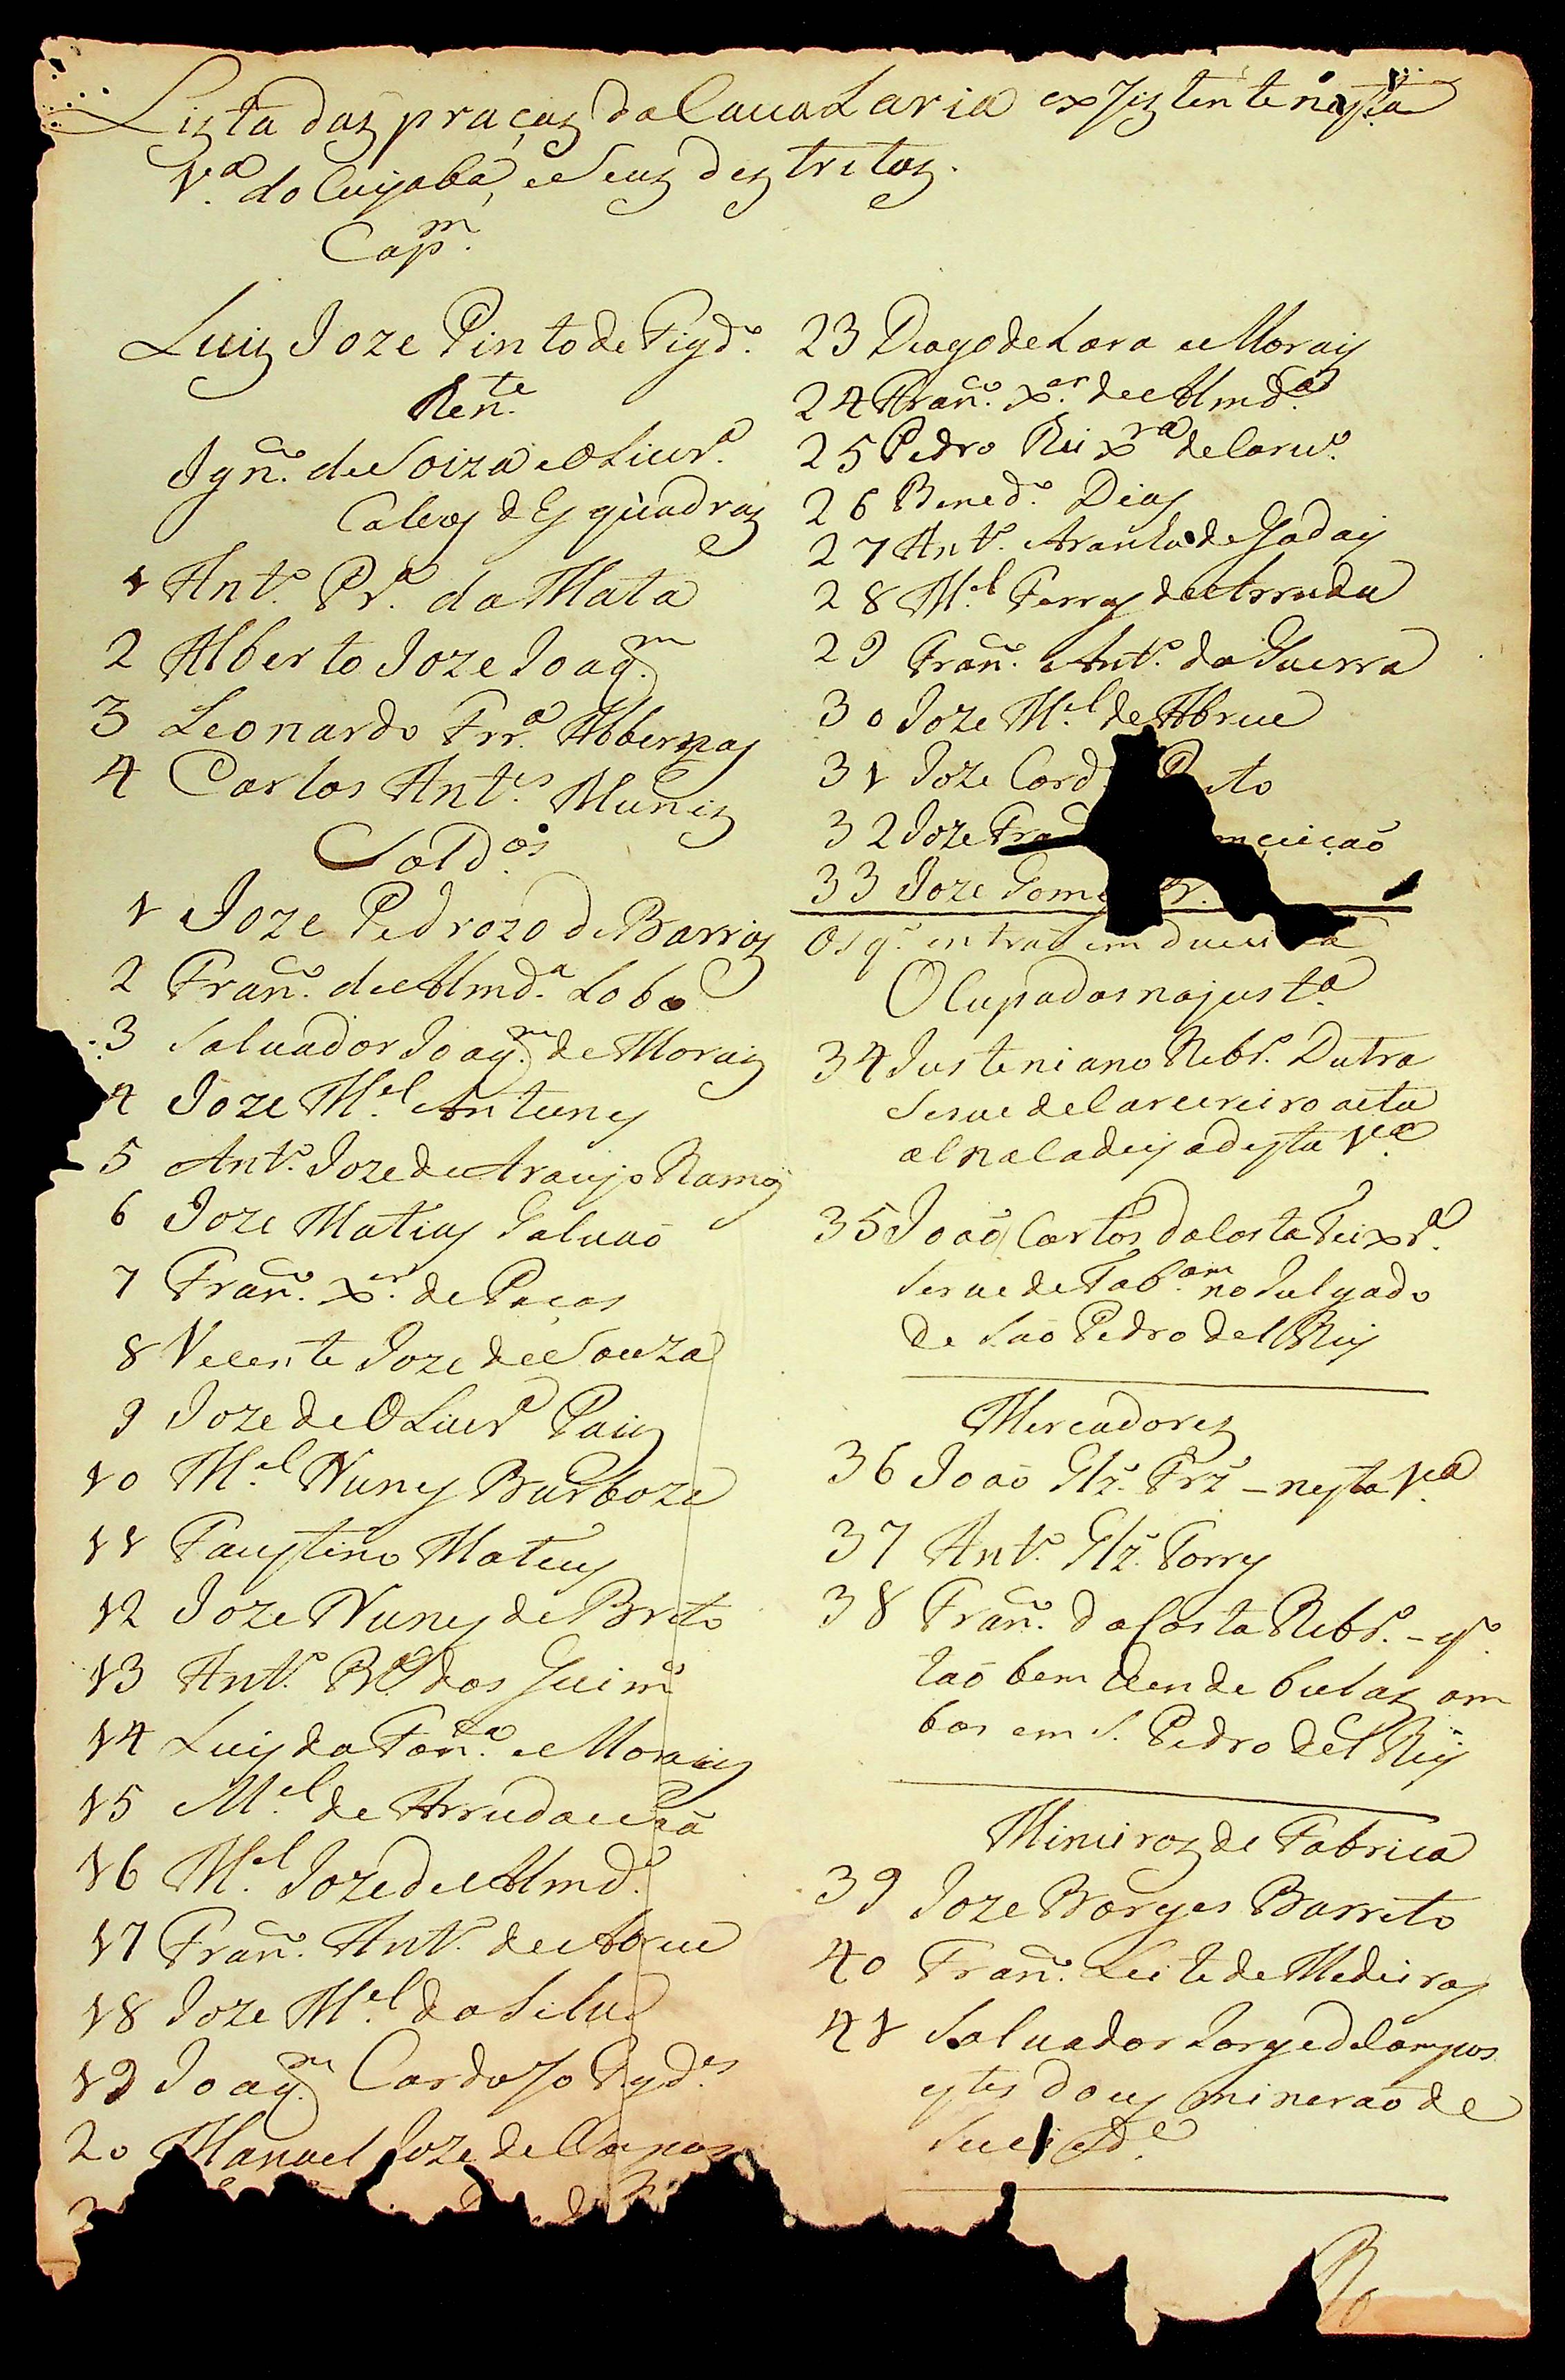 Lista das praças da Cauallaria exzistente nesta
V.ª do Cuyabá, e Seus destritos.
Cap.m
Luis Joze Pinto de Figd.º
Ten.te
Ign.co de Soiza e Oliur.ª
Cabos d Esquadras
1 Ant.º Pr.ª da Mata
2 Alberto Joze Joaq.m
3 Leonardo Frr.ª Abbernas
4 Carlos Ant.es Muniz
Sold.os
1 Joze Pedrozo de Barros
2 Fran.co de Almd.ª Lobo
3 Saluador Joaq.m de Morais
4 Joze M.el Antunes
5 Ant.º Joze de Araujo Ramos
6 Joze Matias Galuaõ
7 Fran.co X.er de Paças
8 Vecente Joze de Souza
9 Joze de Oliur.ª Pais
10 M.el Nunes Barboza
11 Faustino Mateus
12 Joze Nunes de Brito
13 Ant.º dos Guim.s
14 Luis da Fon.ca e Morais
15 M.el de Arruda e Sá
16 M.el Joze de Almd.ª
17 Fran.co Ant.º de Abreu
18 Joze M.el da Silua
19 Joaq.m Cardozo Fagd.es
20 Manoel Joze de Campos
23 Diogo de Lara e Morais
24 Fran.co X.er de Almd.ª
25 Pedro Teixr.ª de Caru.º
26 Bened.º Dias
27 Ant.º Aranha de Godois
28 M.el Ferras de Arruda
29 Fran.co Ant.º da Guerra
30 Joze M.el de Abreu
31 Joze Cord
32 Joze Fra nceiçaõ
33 Joze Gome
Os q.e entraõ em duuida
Ocupados na just.ª
34 Justeniano Rebr.º Dutra
Serue de Carcereiro actu
al na Cadeya desta V.ª
35 Joaõ Carlos da Costa Teixr.ª
Serue de Tab.am no Julgado
de Saõ Pedro del Rey
Mercadores
36 Joaõ Glz. Frz. - nesta V.ª
37 Ant.º Glz. Torres
38 Fran.co da Costa Rebr.º - q.e
taõ bem Vende bulas am
bos em S. Pedro del Rey
Mineiros de Fabrica
39 Joze Borges Barreto
40 Fran.co Leite de Medeiros
41 Saluador Jorge de Campos
estes dous mineraõ de
Socied.e